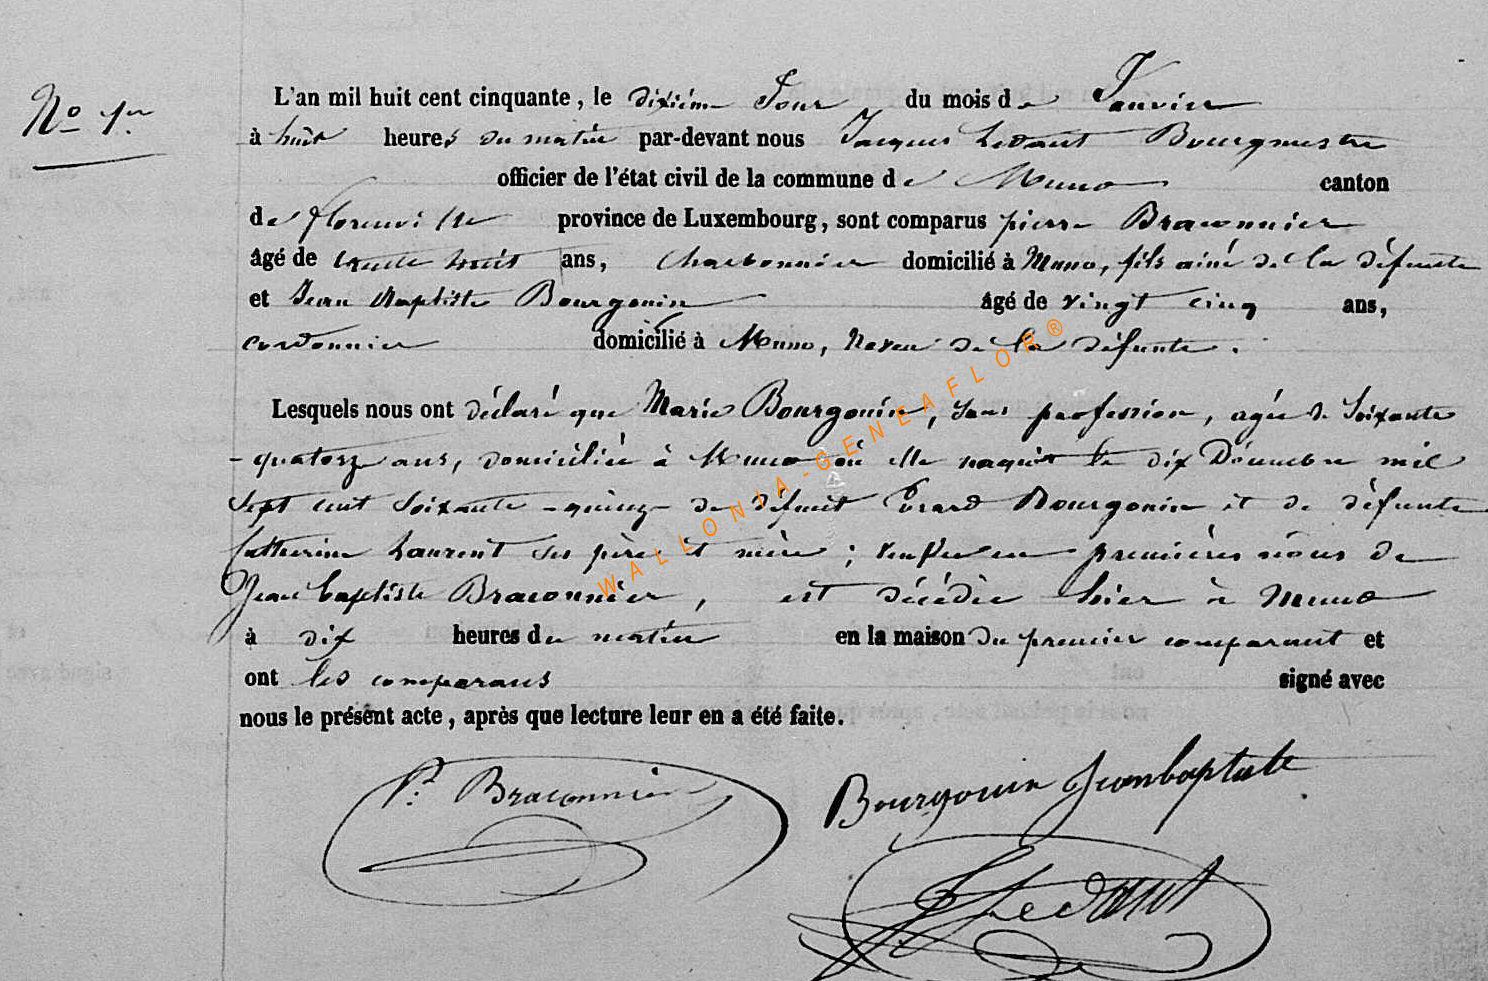 No 1er
L'an mil huit cent cinquante, le dixième Jour du mois de Janvier
à huit heures du matin par-devant nous Jacques Ledant Bourgmestre
officier de l'état civil de la commune de Muno canton
de florenville province de Luxembourg, sont comparus pierre Braconnier
âgé de trente huit ans, charbonnier domicilié à Muno, fils ainé de la défunte
et Jean Baptiste Bourgouin âgé de vingt cinq ans,
cordonnier domicilié à Muno, Neveu de la défunte.
Lesquels nous ont déclaré que Marie Bourgouin, sans profession, agée de Soixante
-quatorze ans, domiciliée à Muno où elle naquit le dix Décembre mil
Sept cent Soixante-quinze de défunt Evrard Bourgouin et de défunte
Catherine Laurent ses père et mère ; veuve en premières nôces de
Jean baptiste Braconnier, est décédée hier à Muno
à dix heures du matin en la maison du premier comparant et
ont les comparans signé avec
nous le présent acte, après que lecture leur en a été faite.
Pre Braconnier
Bourgouin Jeanbaptiste
J Ledant
WALLONIA-GENEAFLOR®